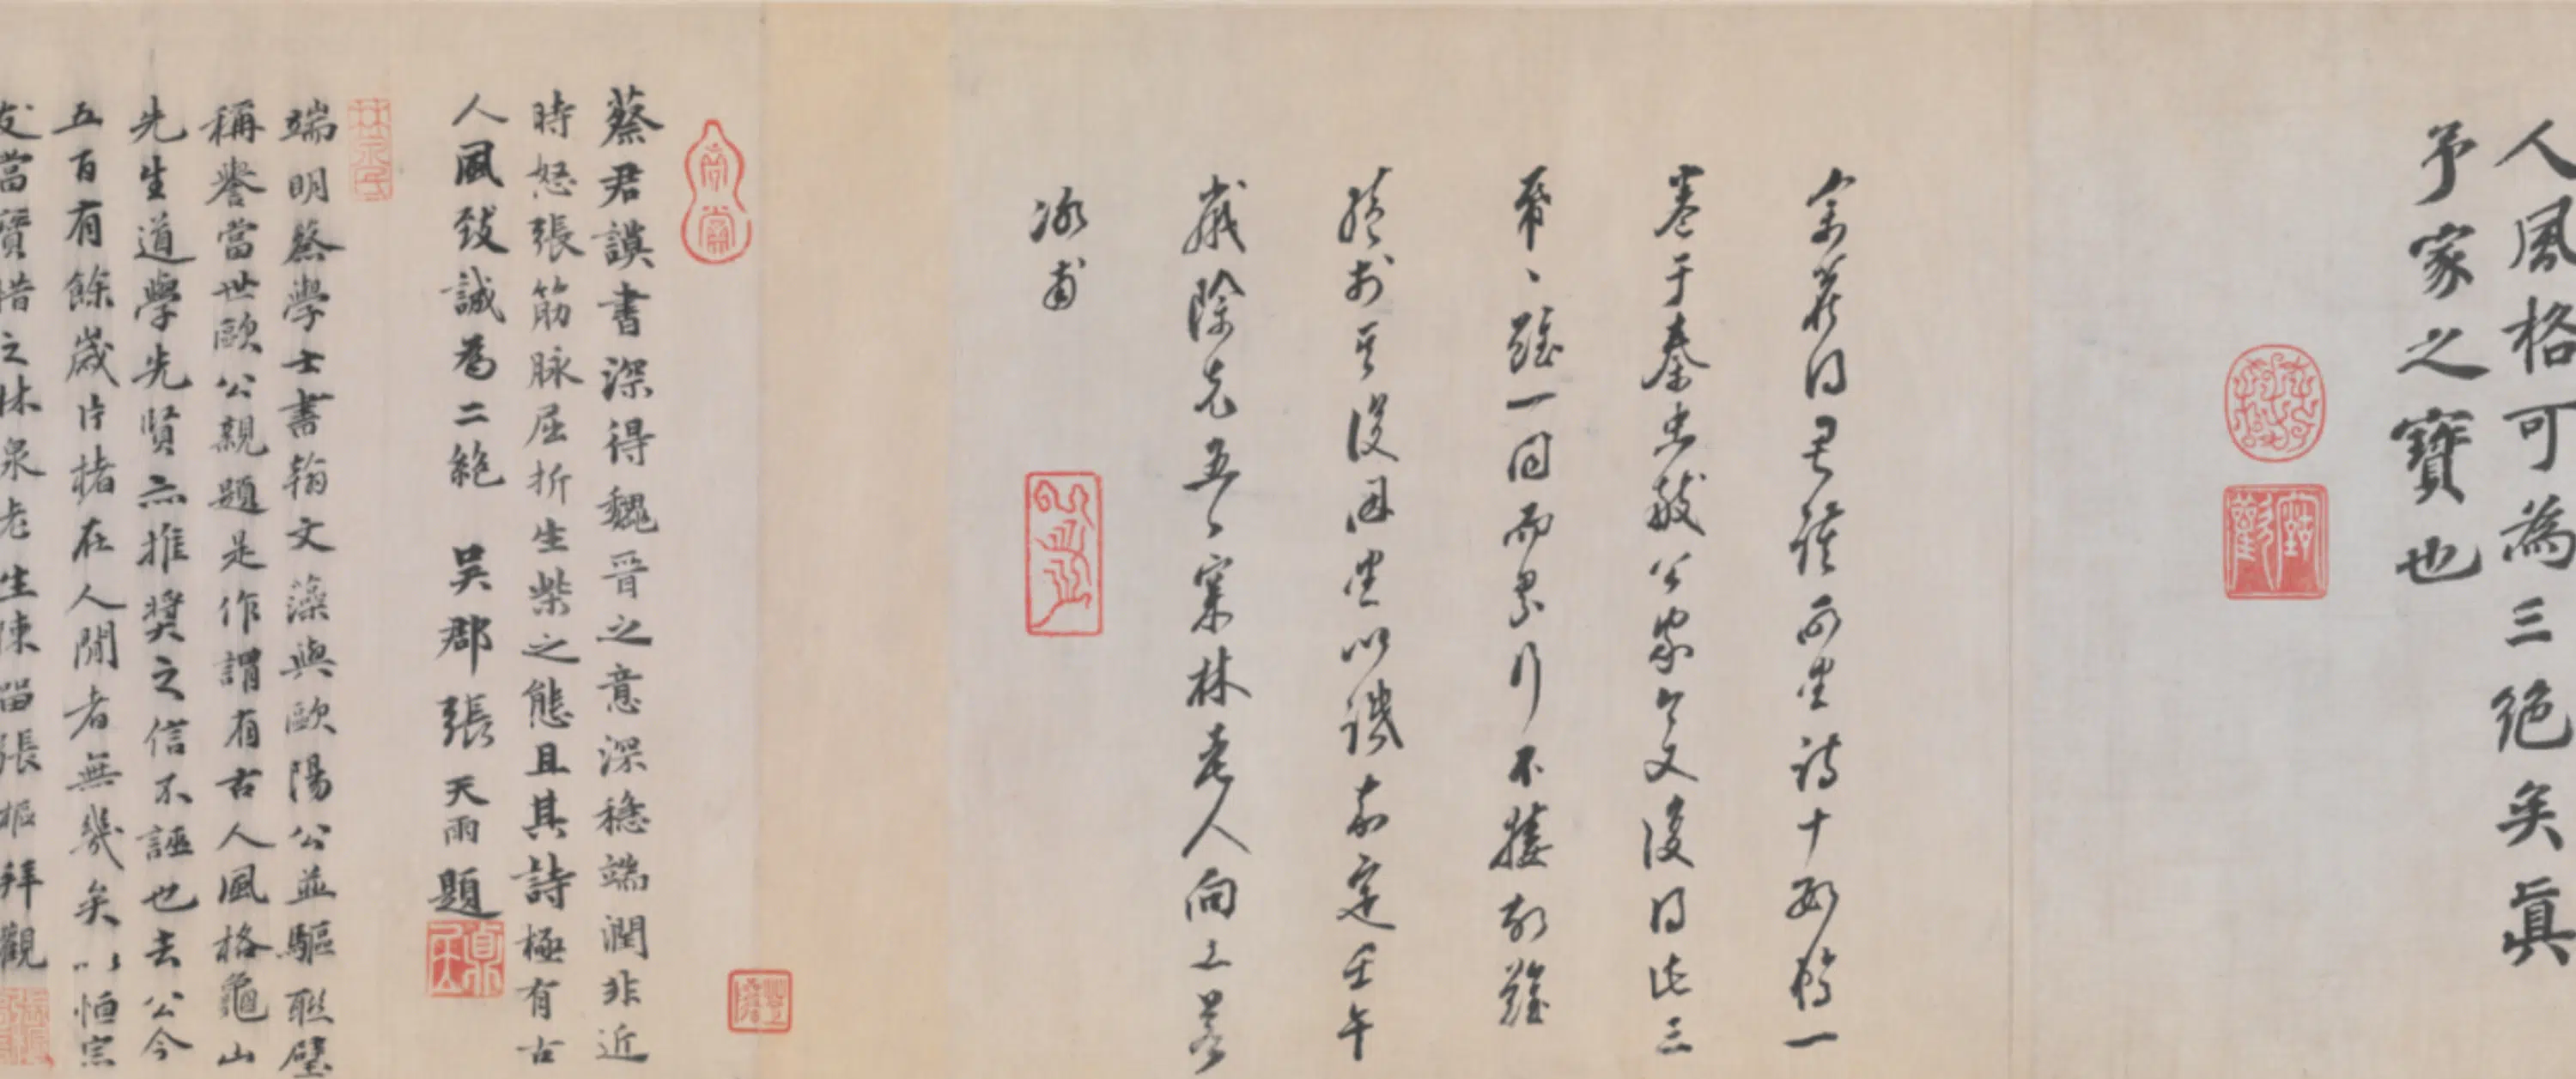 人風格可為三絕矣真
予家之寶也
余舊得君謨所書詩十數稿一
卷于秦忠獻公家今又復得此三
帋丶雖一同而累行不接故雖
續於其後因書以識嘉定壬午
歲除先五寒林老人向水若
冰甫
蔡君謨書深得魏晉之意深穩端潤非近
時怒張筋脉屈折生柴之態且其詩極有古
人風致誠為二絕 吳郡張天雨題
端明蔡學士書翰文藻與歐陽公並驅聯璧
稱譽當世歐公親題是作謂有古人風格龜山
先生道學先賢亦推獎之信不誣也去公今
五百有餘歲片楮在人間者無幾矣以恒宗
友當寶惜之林泉老生陳留張樞拜觀